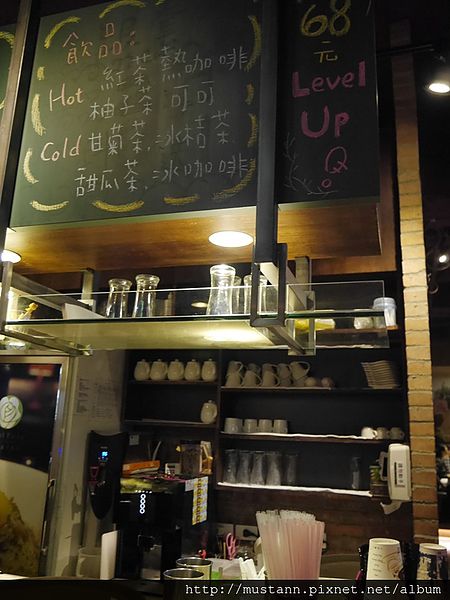 飲品:
紅茶 熱咖啡
Hot 柚子茶 可可
Cold 甘菊茶.冰桔茶
甜瓜茶.冰咖啡
68
元
Level
Up
Q。
http://mustann.pixnet.net/album